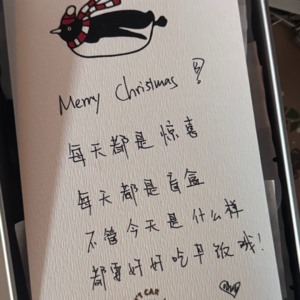 Merry Christmas
每天都是惊喜
每天都是盲盒
不管今天是什么样
都要好好吃早饭哦！
CAR